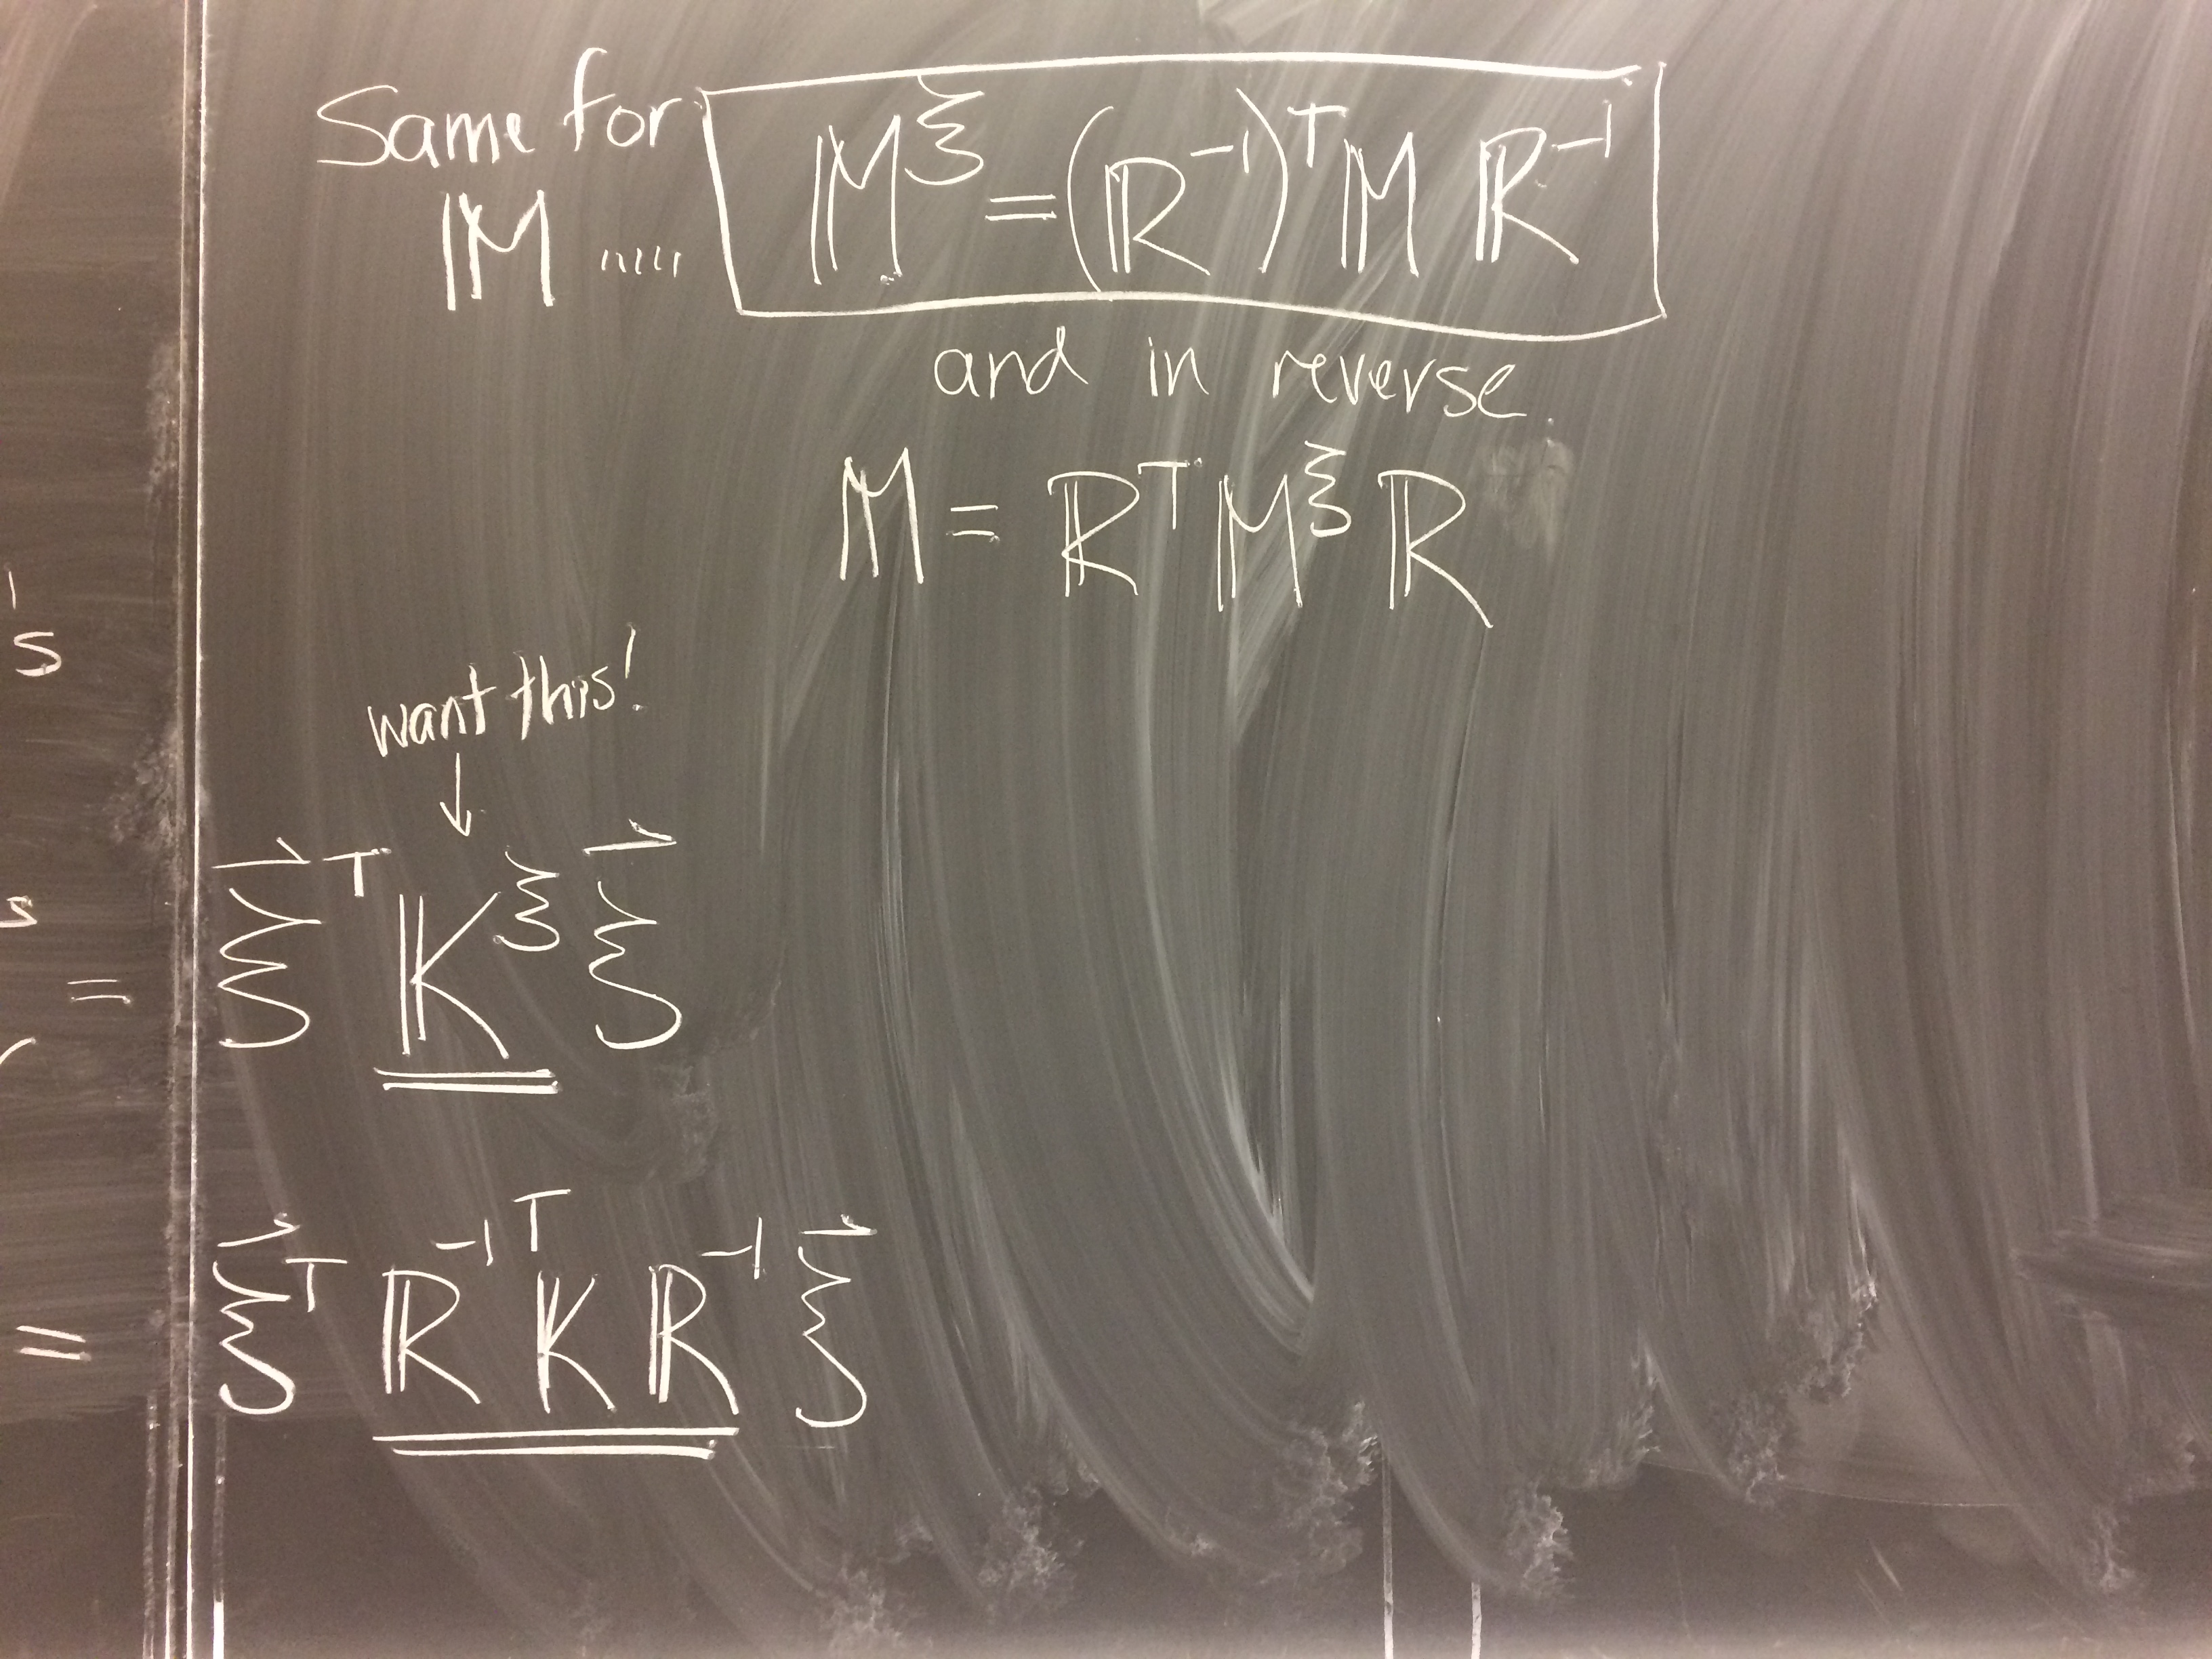 Same for
𝕄 ..... 𝕄^ξ = (ℝ⁻¹)ᵀ 𝕄 ℝ⁻¹
and in reverse.
𝕄 = ℝᵀ 𝕄^ξ ℝ
s
want this!
↓
s
= ξ⃗ᵀ 𝕂^ξ ξ⃗
= ξ⃗ᵀ ℝ⁻¹ᵀ 𝕂 ℝ⁻¹ ξ⃗